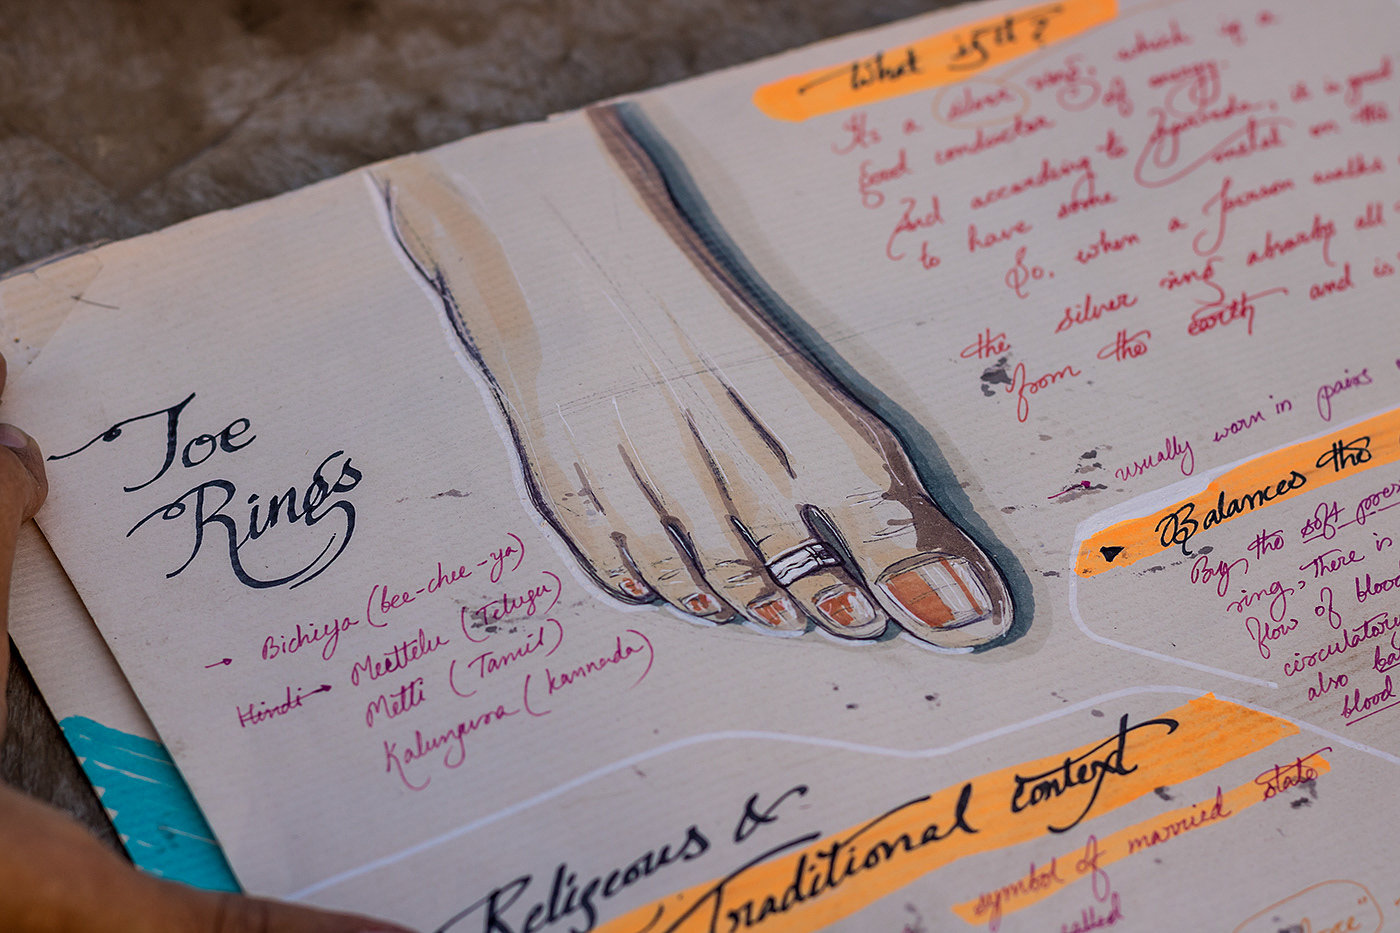 What is it?
It's a silver ring, which is a
Good conductor of energy.
And according to Ayurveda, it is good
to have some metal on the
So, when a Person walks
the silver ring absorbs all
from the earth and is
usually worn in pairs
Toe
Rings
Bichiya (bee-chee-ya)
Hindi Meettelu (Telugu)
Metti (Tamil)
Kalungura (kannada)
Balances the
By, the soft pres
ring, there is
flow of blood
circulatory
also ba
blood
Religeous &
Traditional context
symbol of married state
called